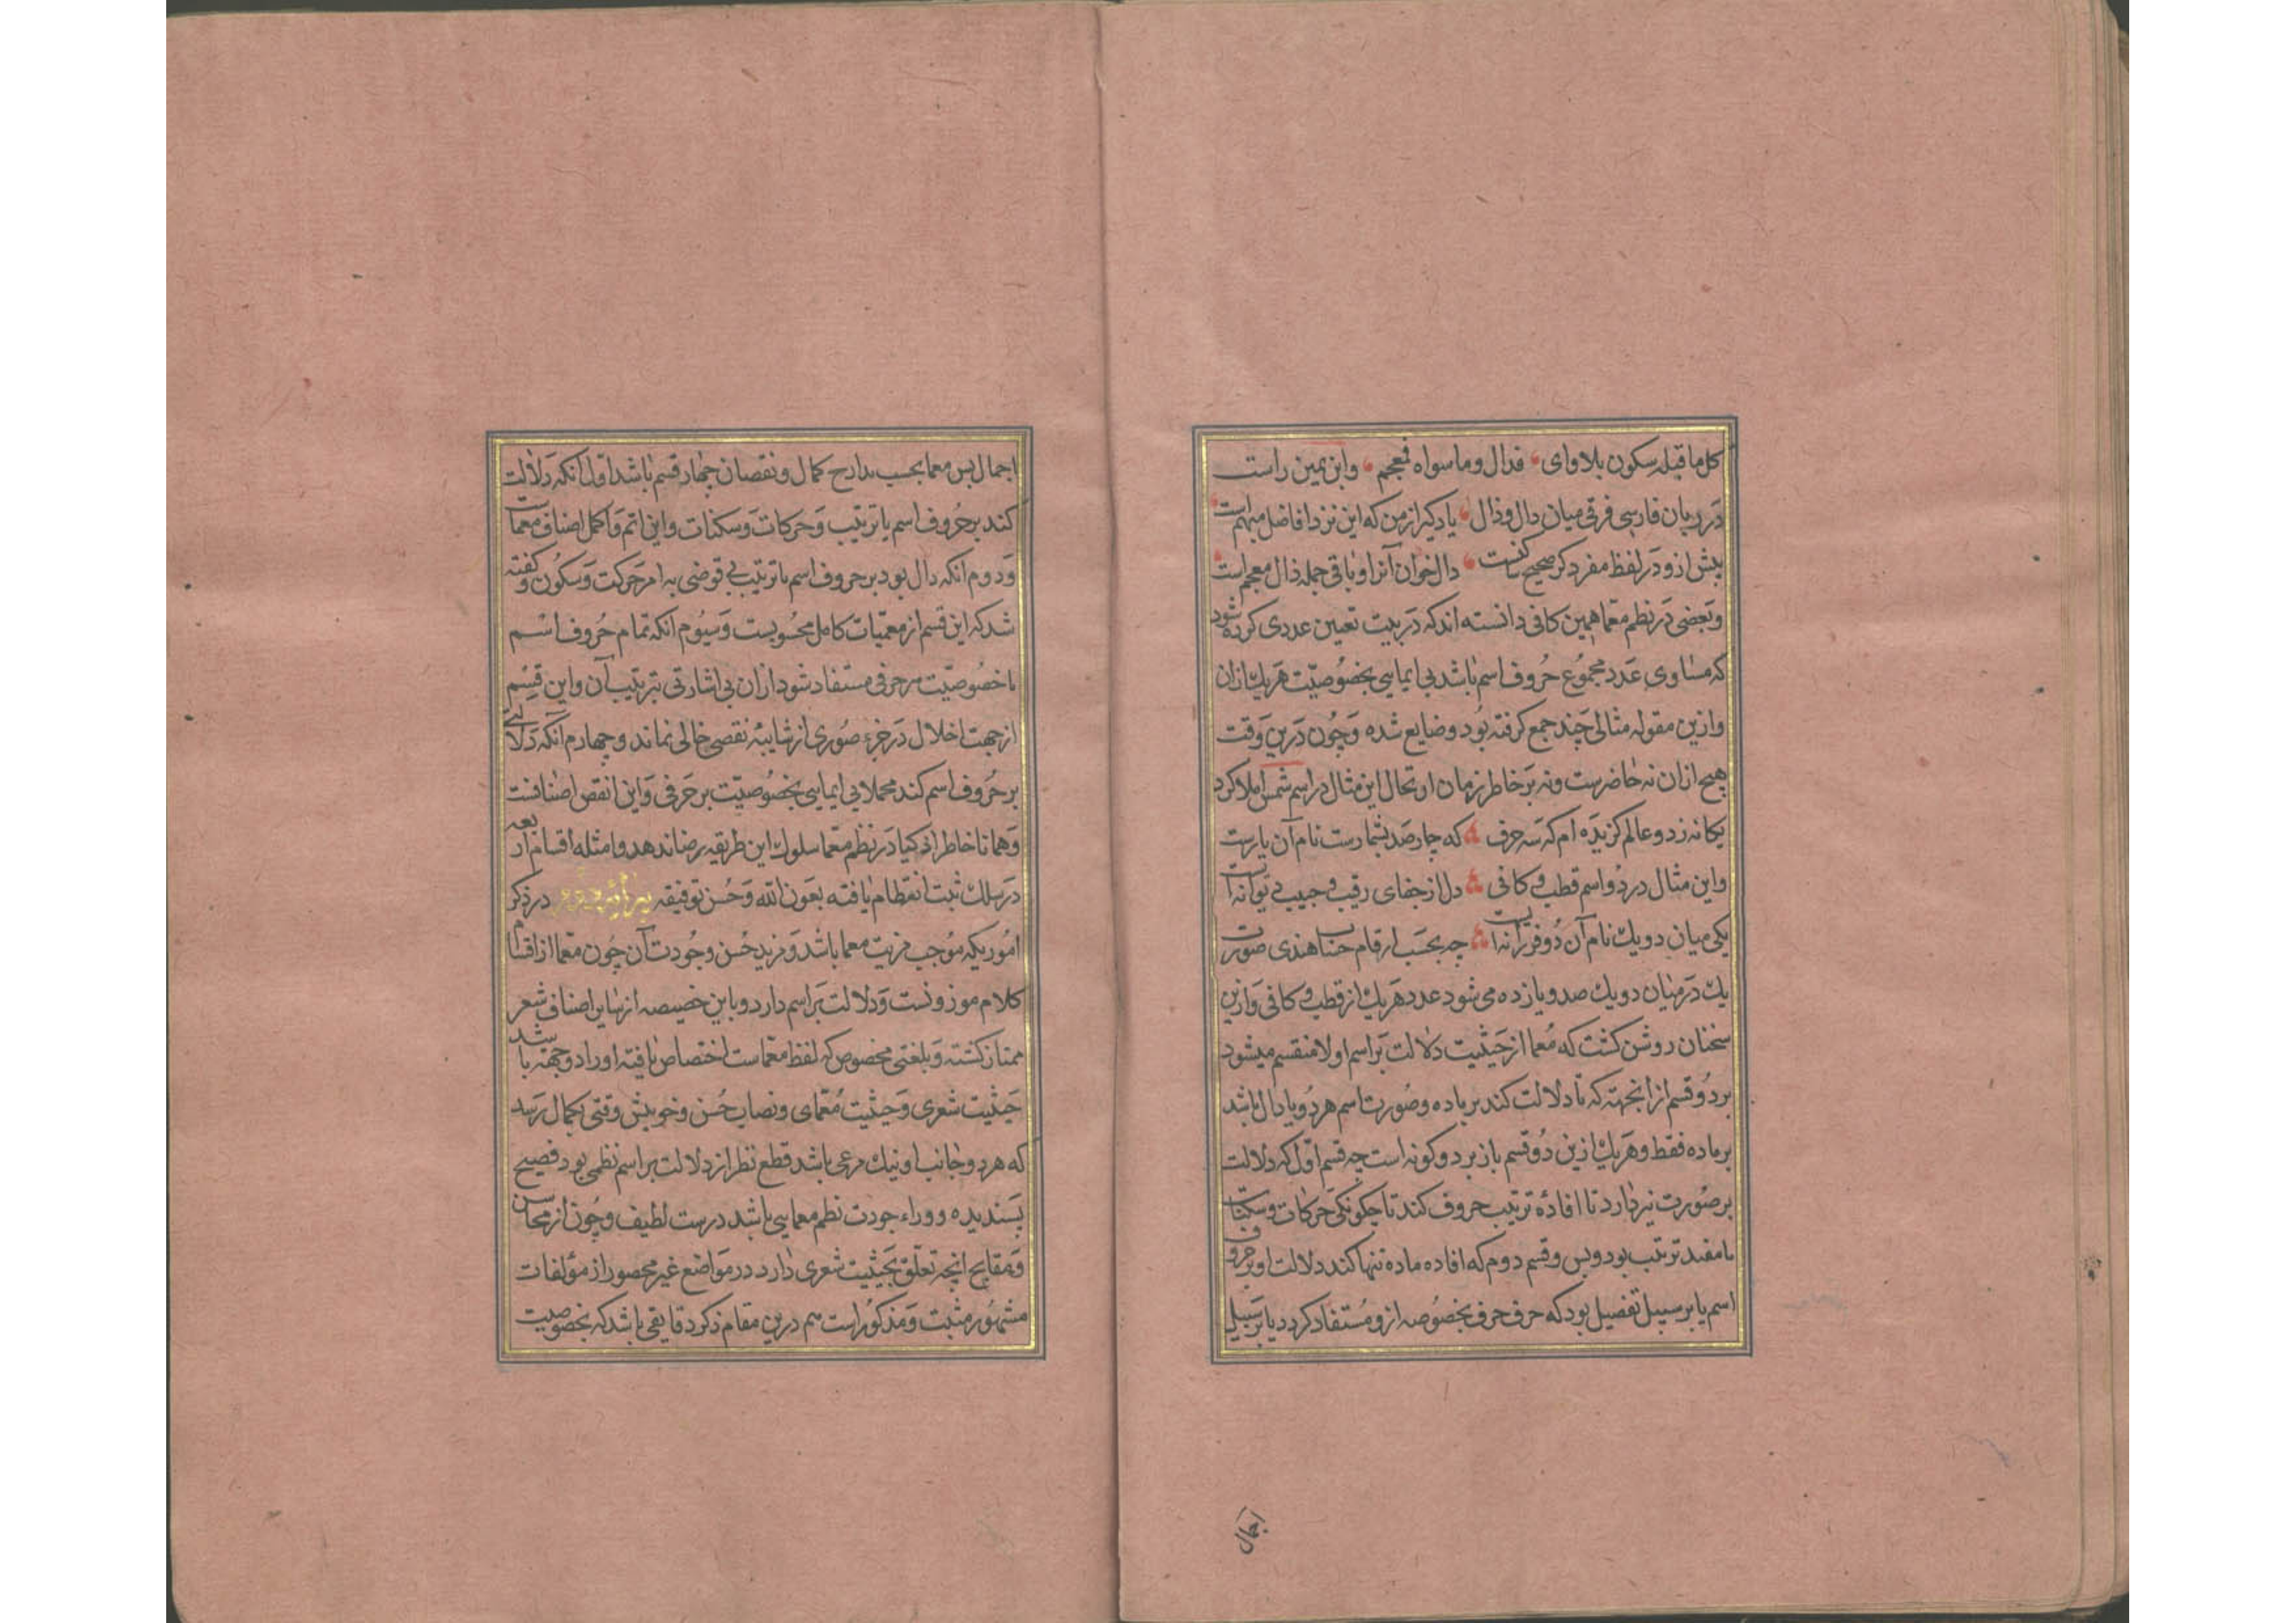 کل ماقبله سکون بلا وای فدال وما سواه فمعجم وابن یمین راست
در زبان فارسی فرقی میان دال و ذال یاد گیر از من که این نزد افاضل مبهم است
پیش ازو در لفظ مفرد گر صحیح ساکنست دال خوان آنرا و باقی جمله ذال معجم است
وبعضی در نظم معما همین کافی دانسته اند که در بیت تعیین عددی کرده شود
که مساوی عدد مجموع حروف اسم باشد بی ایمایی بخصوصیت هریک ازان
وازین مقوله مثالی چند جمع کرفته بود وضایع شده وچون درین وقت
هیچ ازان نه حاضرست ونه بر خاطر زمان ارتحال این مثال در اسم شمس املا کرد
یکانه زد و عالم کزیده ام که سه حرف که چارصد بشمارست نام آن یارست
واین مثال در دو اسم قطب و کافی دل از جفای رقیب و حبیب بی توانست
یکی میان دو یک نام آن دو فرزانه است چه بحسب ارقام حساب هندی صورت
یک در میان دو یک صد و یازده می شود عدد هریک از قطب و کافی وازین
سخنان روشن کشت که معما از حیثیت دلالت بر اسم اولا منقسم میشود
بر دو قسم از انجهته که یا دلالت کند بر ماده وصورت اسم هر دو یا دال باشد
بر ماده فقط وهریک ازین دو قسم باز بر دو کونه است چه قسم اول که دلالت
بر صورت نیز دارد تا افادۀ ترتیب حروف کند تا چکونکی حرکات وسکنات
یا مفید ترتیب بود وبس وقسم دوم که افاده ماده تنها کند دلالت او بر حروف
اسم یا بر سبیل تفصیل بود که حرف حرف بخصوصه ازو مستفاد کردد یا بر سبیل
اجمال
اجمال پس معما بحسب مدارج کمال و نقصان چهار قسم باشد اول انکه دلالت
کند بر حروف اسم با ترتیب وحرکات وسکنات واین اتم واکمل اصناف معماست
ودوم انکه دال بود بر حروف اسم با ترتیب بی تعرضی به امر حرکت وسکون وکفته
شد که این قسم از معمیات کامل محسوبست وسیوم انکه تمام حروف اسم
با خصوصیت هر حرفی مستفاد شود ازان بی اشارتی بترتیب آن واین قسم
از جهت اخلال در جزء صوری از شایبۀ نقصی خالی نماند وچهارم آنکه دلالتی
بر حروف اسم کند مجملا بی ایمایی بخصوصیت بر حرفی واین انقص اصنافست
وهمانا خاطر اذکیا در نظم معما سلوک این طریقه رضا ندهد وامثله اقسام اربعه
در سلک ثبت انتظام یافته بعون الله وحسن توفیقه در ذکر
اموریکه موجب مزیت معما باشد ومزید حسن وجودت آن چون معما از اقسام
کلام موزونست ودلالت بر اسم دارد وباین خصیصه از سایر اصناف شعر
ممتاز کشته وبلغتی مخصوص که لفظ معماست اختصاص یافته اورا دو جهة باشد
حیثیت شعری وحیثیت معمای ونصاب حسن وخوبیش وقتی بکمال رسد
که هر دو جانب او نیک مرعی باشد قطع نظر از دلالت بر اسم نظمی بود فصیح
پسندیده وورای جودت نظم معمایی باشد درست لطیف وچون از محاسن
ومقابح انچه تعلق بحیثیت شعری دارد در مواضع غیر محصور از مؤلفات
مشهور مثبت ومذکور است هم درین مقام ذکر دقایقی باشد که بخصوصیت